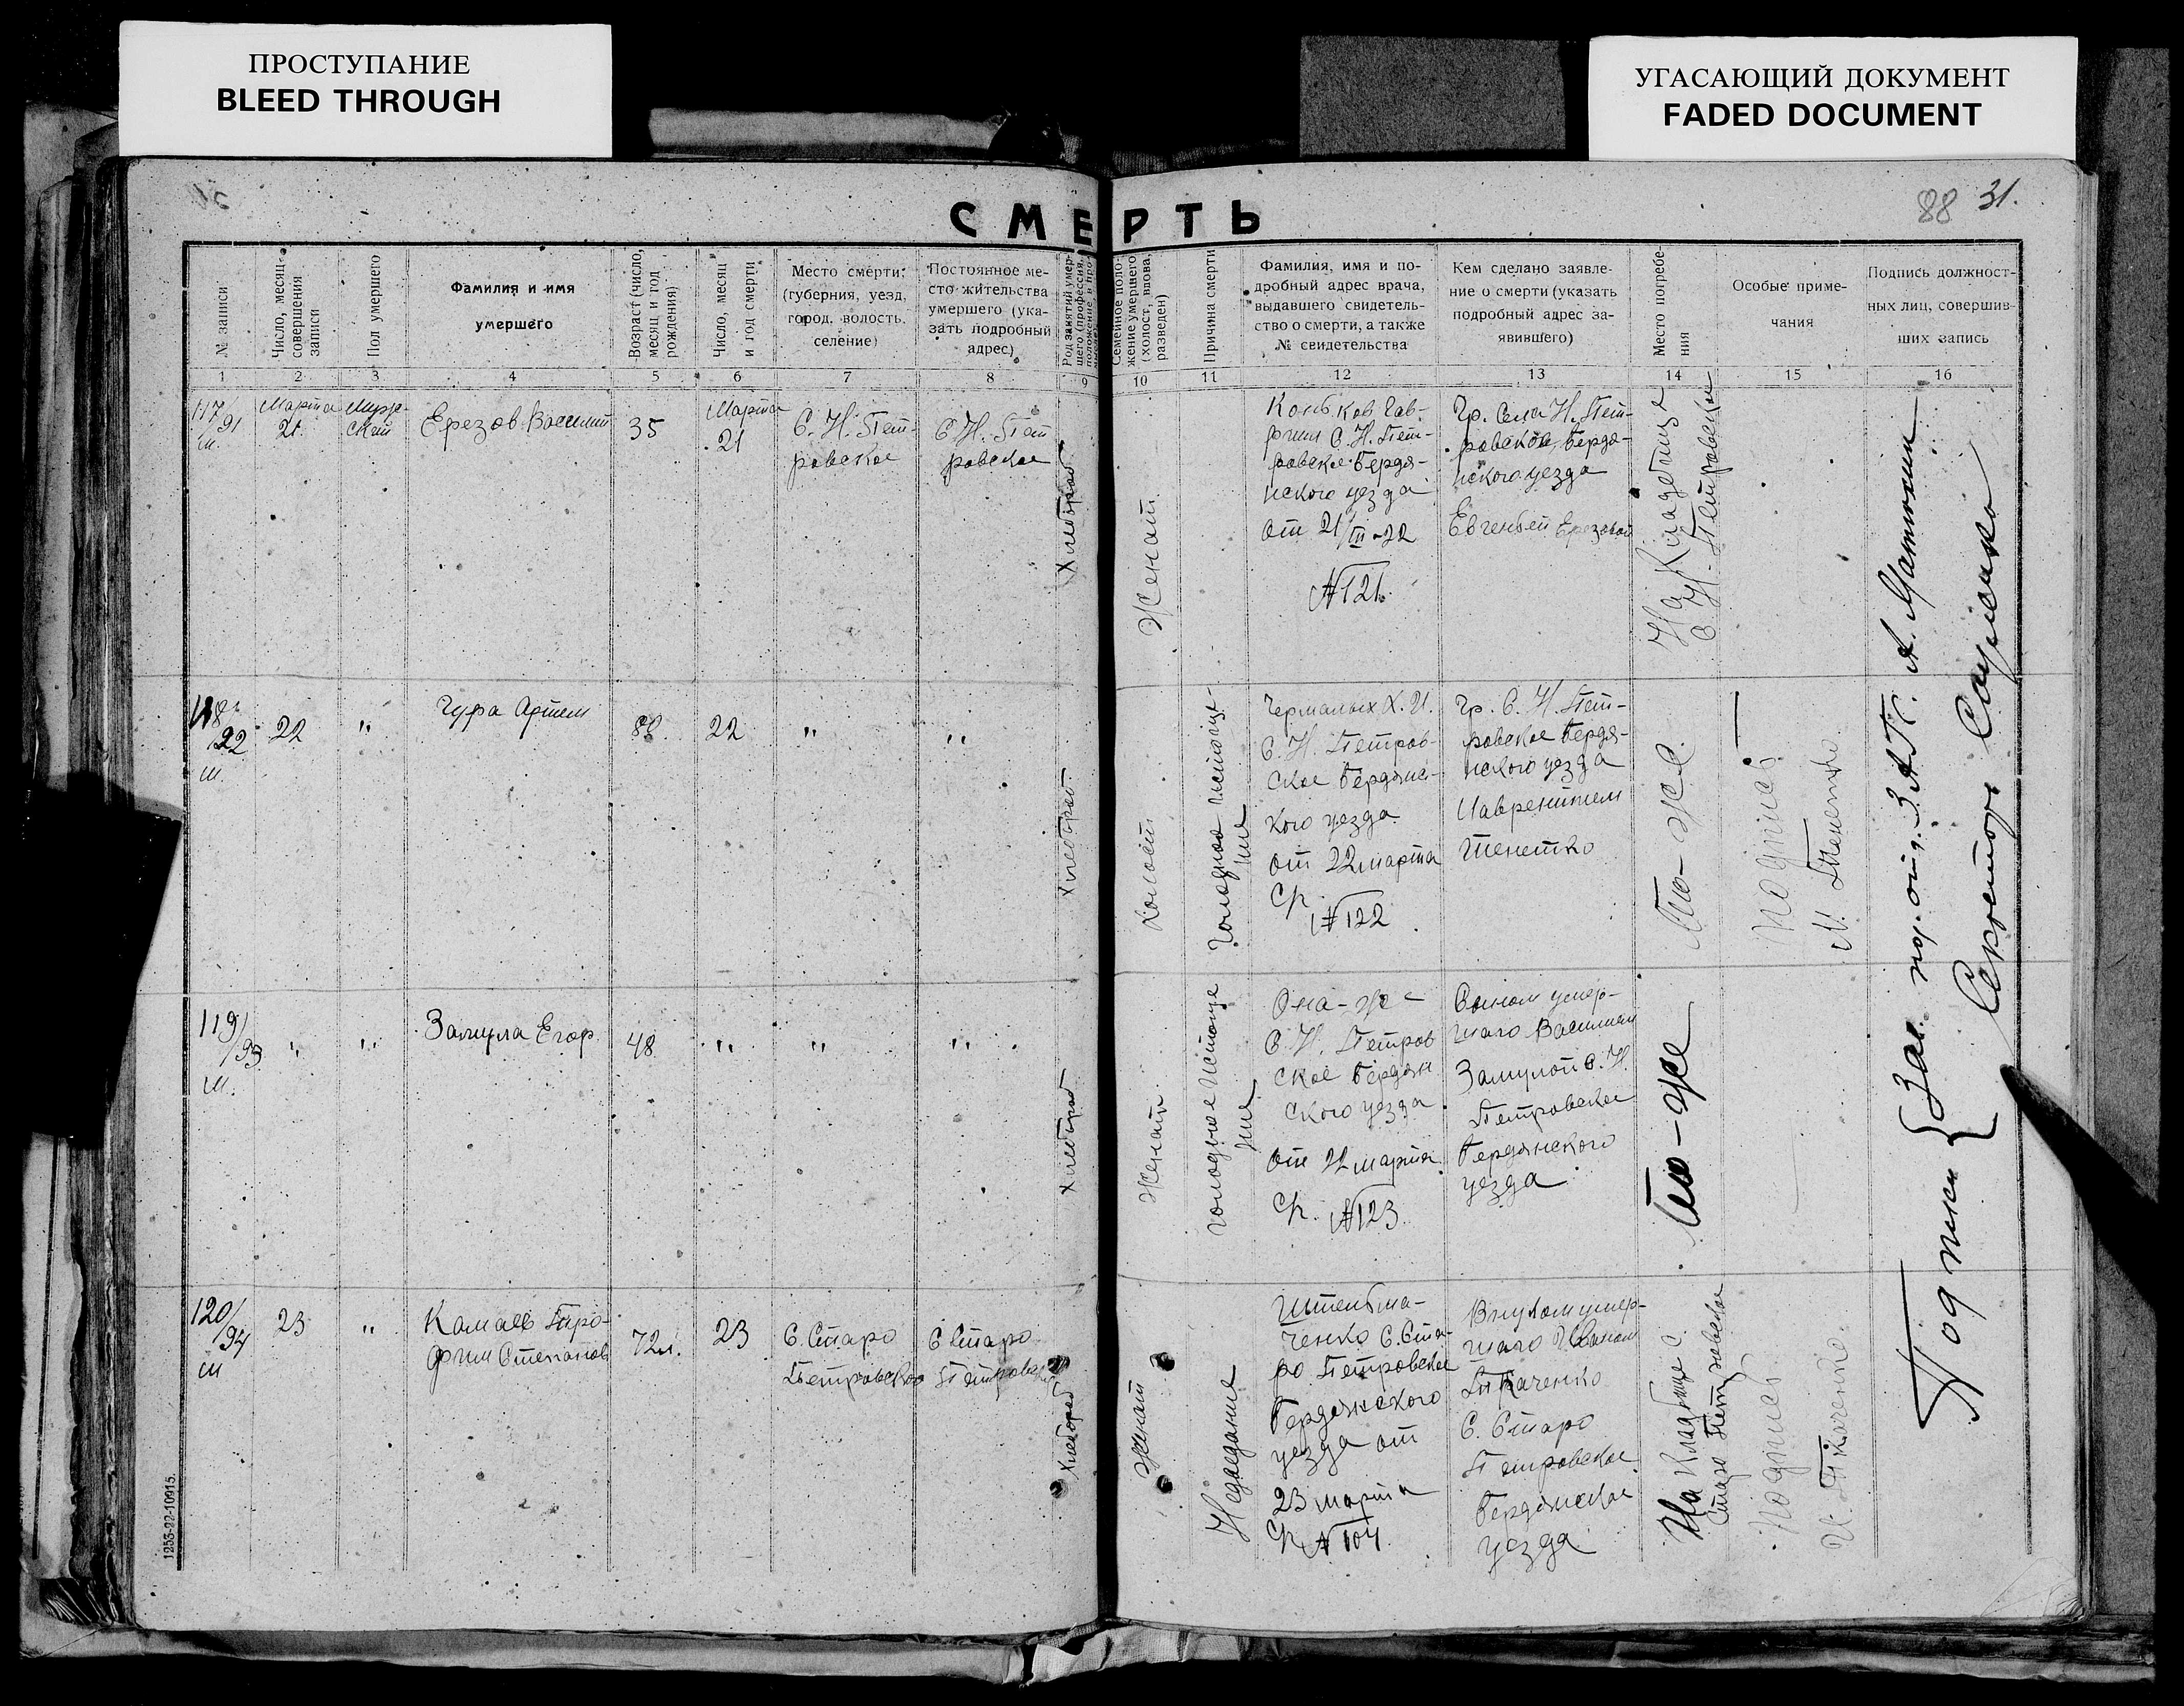 ПРОСТУПАНИЕ
BLEED THROUGH
УГАСАЮЩИЙ ДОКУМЕНТ
FADED DOCUMENT
88 31.
СМЕРТЬ
№ записи
Число, месяц совершения записи
Пол умершего
Фамилия и имя
умершего
Возраст (число, месяц и год рождения)
Число, месяц и год смерти
Место смерти:
(губерния, уезд,
город, волость,
селение)
Постоянное ме-
сто жительства
умершего (ука-
зать подробный
адрес)
Род занятий умер-
шего (профессия,
положение в про-
Семейное поло-
жение умершего
(холост, вдова,
разведен)
Причина смерти
Фамилия, имя и по-
дробный адрес врача,
выдавшего свидетель-
ство о смерти, а также
№ свидетельства
Кем сделано заявле-
ние о смерти (указать
подробный адрес за-
явившего)
Место погребе-
ния
Особые приме-
чания
Подпись должност-
ных лиц, совершив-
ших запись
1 2 3 4 5 6 7 8 9 10 11 12 13 14 15 16
117/91
м.
Марта
21
Муж-
ской
Ерезов Василий
35
Марта
21
С. Н. Пет-
ровское
С. Н. Пет
ровское
Хлебороб
Женат
Коньков Гав-
риил С. Н. Пет-
ровское Бердя-
нского уезда
от 21/III-22
№121.
Гр. Села Н. Пет-
ровское, Бердя-
нского уезда
Евгенией Ерезовой
На Кладбище
С. Н. Петровское
118
/92
м.
22
"
Чура Артем
22
"
"
Хлебороб
Холост
Голодное истоще-
ние
Чермалых Х. И.
С. Н. Петров-
ское Бердянс-
кого уезда
от 22 марта
№122
Гр. С. Н. Пет-
ровское Бердя-
нского уезда
Лаврентием
То-же
Подпись
119
/93
м.
"
"
Замула Егор
48
"
"
"
Хлебороб
Женат
Голодное истоще
ние
Она-же
С. Н. Петров
ское Бердян
ского уезда
от 22 марта
№123
Сыном умер-
шаго Василием
Замулой С. Н.
Петровское
Бердянского
уезда
То-же
120
/94
м
23
"
Камаев Тро-
фим Степанов
72 л.
23
С. Старо
Петровское
С Старо
Петровское
Хлебороб
Женат
Недоедание
ченко С. Ста-
ро Петровское
Бердянского
уезда от
23 марта
№104
Внуком умер-
шаго Иваном
Ткаченко
С. Старо
Петровское
Бердянское
уезда
На Кладбище С.
Старо Петровское
Подпись
И. Ткаченко.
Подписи { Зав. под. отд. ЗАГС.
Секретарь
1253-22-10915.